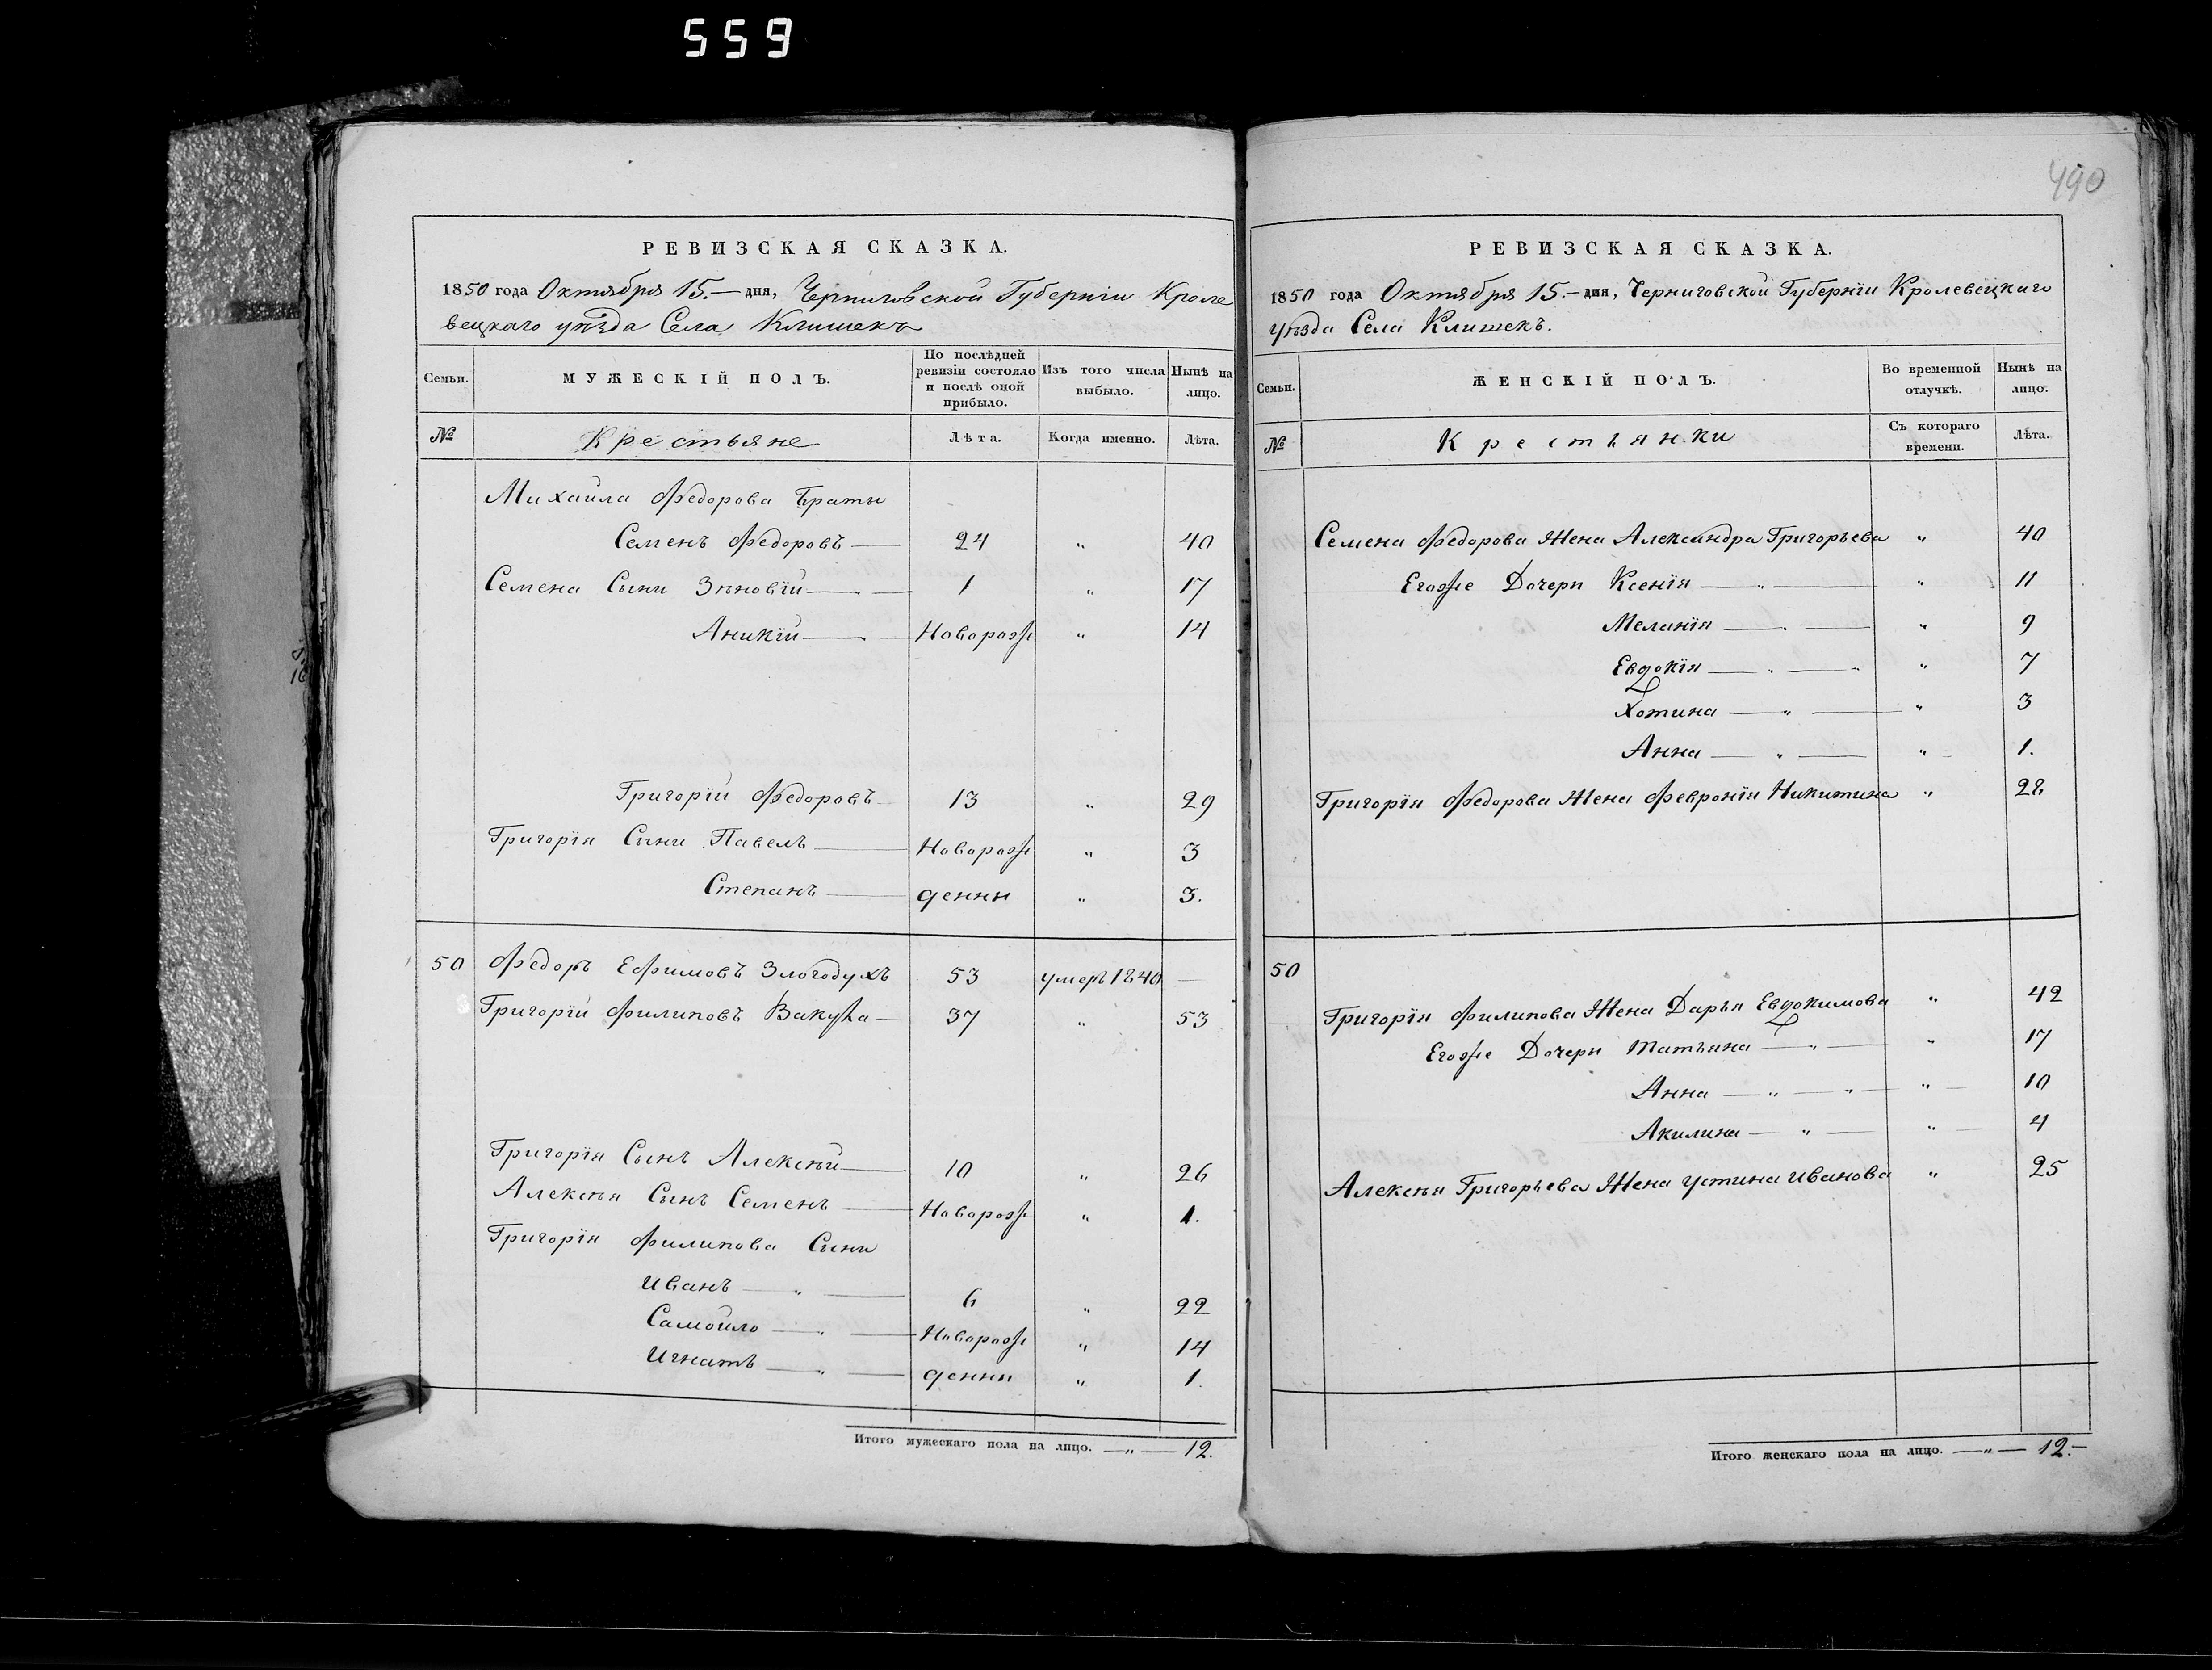 559
490
РЕВИЗСКАЯ СКАЗКА.
1850 года Октября 15.— дня, Черниговской Губернiи Кроле
вецкаго уѣзда Села Клишекъ
Семьи. МУЖЕСКIЙ ПОЛЪ. По послѣдней ревизiи состояло и послѣ оной прибыло. Изъ того числа выбыло. Нынѣ на лицо.
№ Крестьяне Лѣта. Когда именно. Лѣта.
Михайла Федорова Браты
Семенъ Федоровъ — 24 " 40
Семена Сыни Зѣновiй — 1 " 17
Аникiй — Наворож " 14
Григорiй Федоровъ 13 " 29
Григорiя Сыни Павелъ — Наворож " 3
Степанъ — денни " 3.
50 Федоръ Ефимовъ Злогодухъ 53 умеръ 1840 —
Григорiй Филиповъ Вакула — 37 " 53
Григорiя Сынъ Алексѣй — 10 " 26
Алексѣя Сынъ Семенъ — Наворож " 1.
Григорiя Филипова Сыни
Иванъ — " — 6 " 22
Самойло — " — Наворож " 14
Игнатъ — " — денни " 1.
Итого мужескаго пола на лицо. — " — 12.
РЕВИЗСКАЯ СКАЗКА.
1850 года Октября 15.— дня, Черниговской Губернiи Кролевецкаго
уѣзда Села Клишекъ.
Семьи. ЖЕНСКIЙ ПОЛЪ. Во временной отлучкѣ. Нынѣ на лицо.
№ Крестьянки Съ котораго времени. Лѣта.
Семена Федорова Жена Александра Григорьева " 40
Егоже Дочери Ксенiя — " — " 11
Меланiя — " — " 9
Евдокiя — " — " 7
Хотина — " — " 3
Анна — " — " 1.
Григорiя Федорова Жена Февронiя Никитина " 28
50
Григорiя Филипова Жена Дарья Евдокимова " 42
Егоже Дочери Татьяна — " — " 17
Анна — " — " 10
Акилина — " — " 4
Алексѣя Григорьева Жена Устина Иванова " 25
Итого женскаго пола на лицо. — " — 12.—